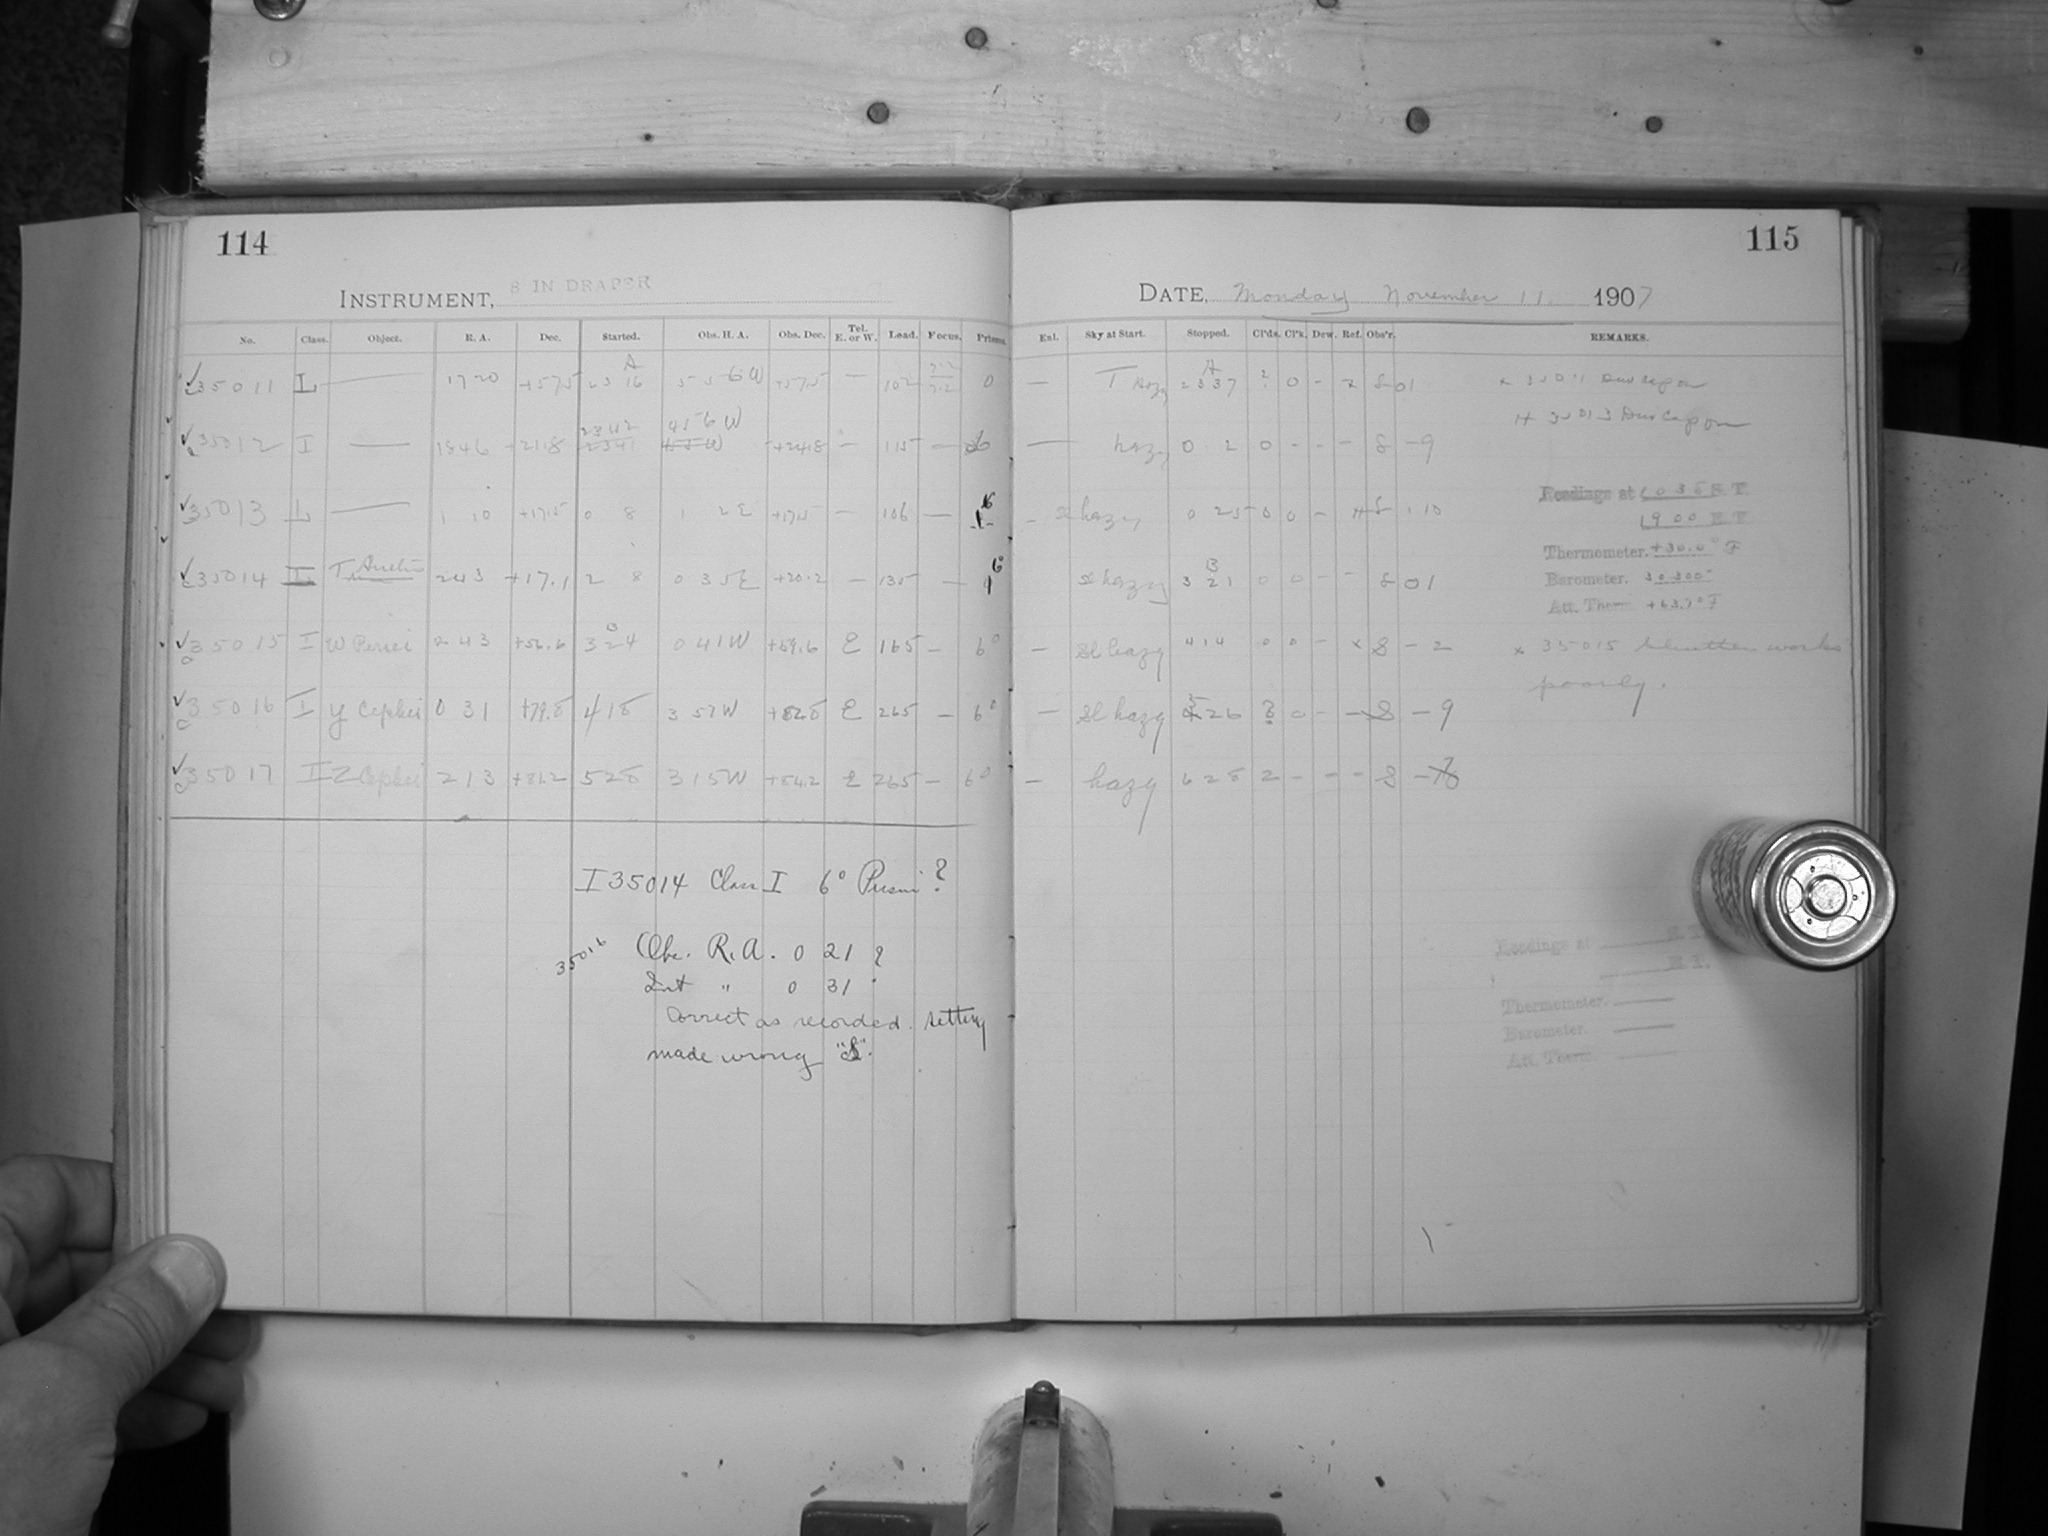 114
INSTRUMENT, 8 IN DRAPER
No. Class. Object. R. A. Dec. Started. Obs. H. A. Obs. Dec. Tel. E. or W. Load. Focus. Prisms.
35011 L — 17 20 +57.5 23 16 A 5 56 W +57.5 — 102 0
35012 I — 18 46 +21.8 2342 2341 4 56 W — 115 — 6
35013 L — 1 10 +17.5 0 8 1 2 E +17.5 — 106 — 6
35014 I T Arietis 2 43 +17.1 2 8 0 35 E +20.2 — 135 — 6°
35015 I W Persei 2 43 +56.6 3 24 B 0 41 W +59.6 E 165 — 6°
35016 I Y Cephei 0 31 +79.8 4 18 3 57 W E 265 — 6°
35017 I Z Cephei 2 13 +81.2 5 28 3 15 W +84.2 E 265 — 6°
I 35014 Class I 6° Prism ?
35016 Obs. R.A. 0 21 ?
Int " 0 31
Correct as recorded. Setting
made wrong "S".
115
DATE, Monday November 11. 1907
Enl. Sky at Start. Stopped. Cl'ds. Cl'k. Dew. Ref. Obs'r. REMARKS.
— Hazy 23 37 A ? 0 - x S 01 x 35011 Dew cap on
H 35013 Dew cap on
— hazy 0 2 0 - - - S -9
- sl hazy 0 25 0 0 - H S 10
Readings at
1900
sl hazy 3 21 B 0 0 - - S 01
Thermometer. +30.0° F
Barometer. 30.300
Att. Therm +63.7° F
— sl hazy 4 14 0 0 - x S - 2 x 35015 Shutter works
poorly.
— sl hazy 5 26 ? 0 - - S - 9
- hazy 6 28 2 - - - S -
Readings at
Thermometer.
Barometer.
Att. Therm